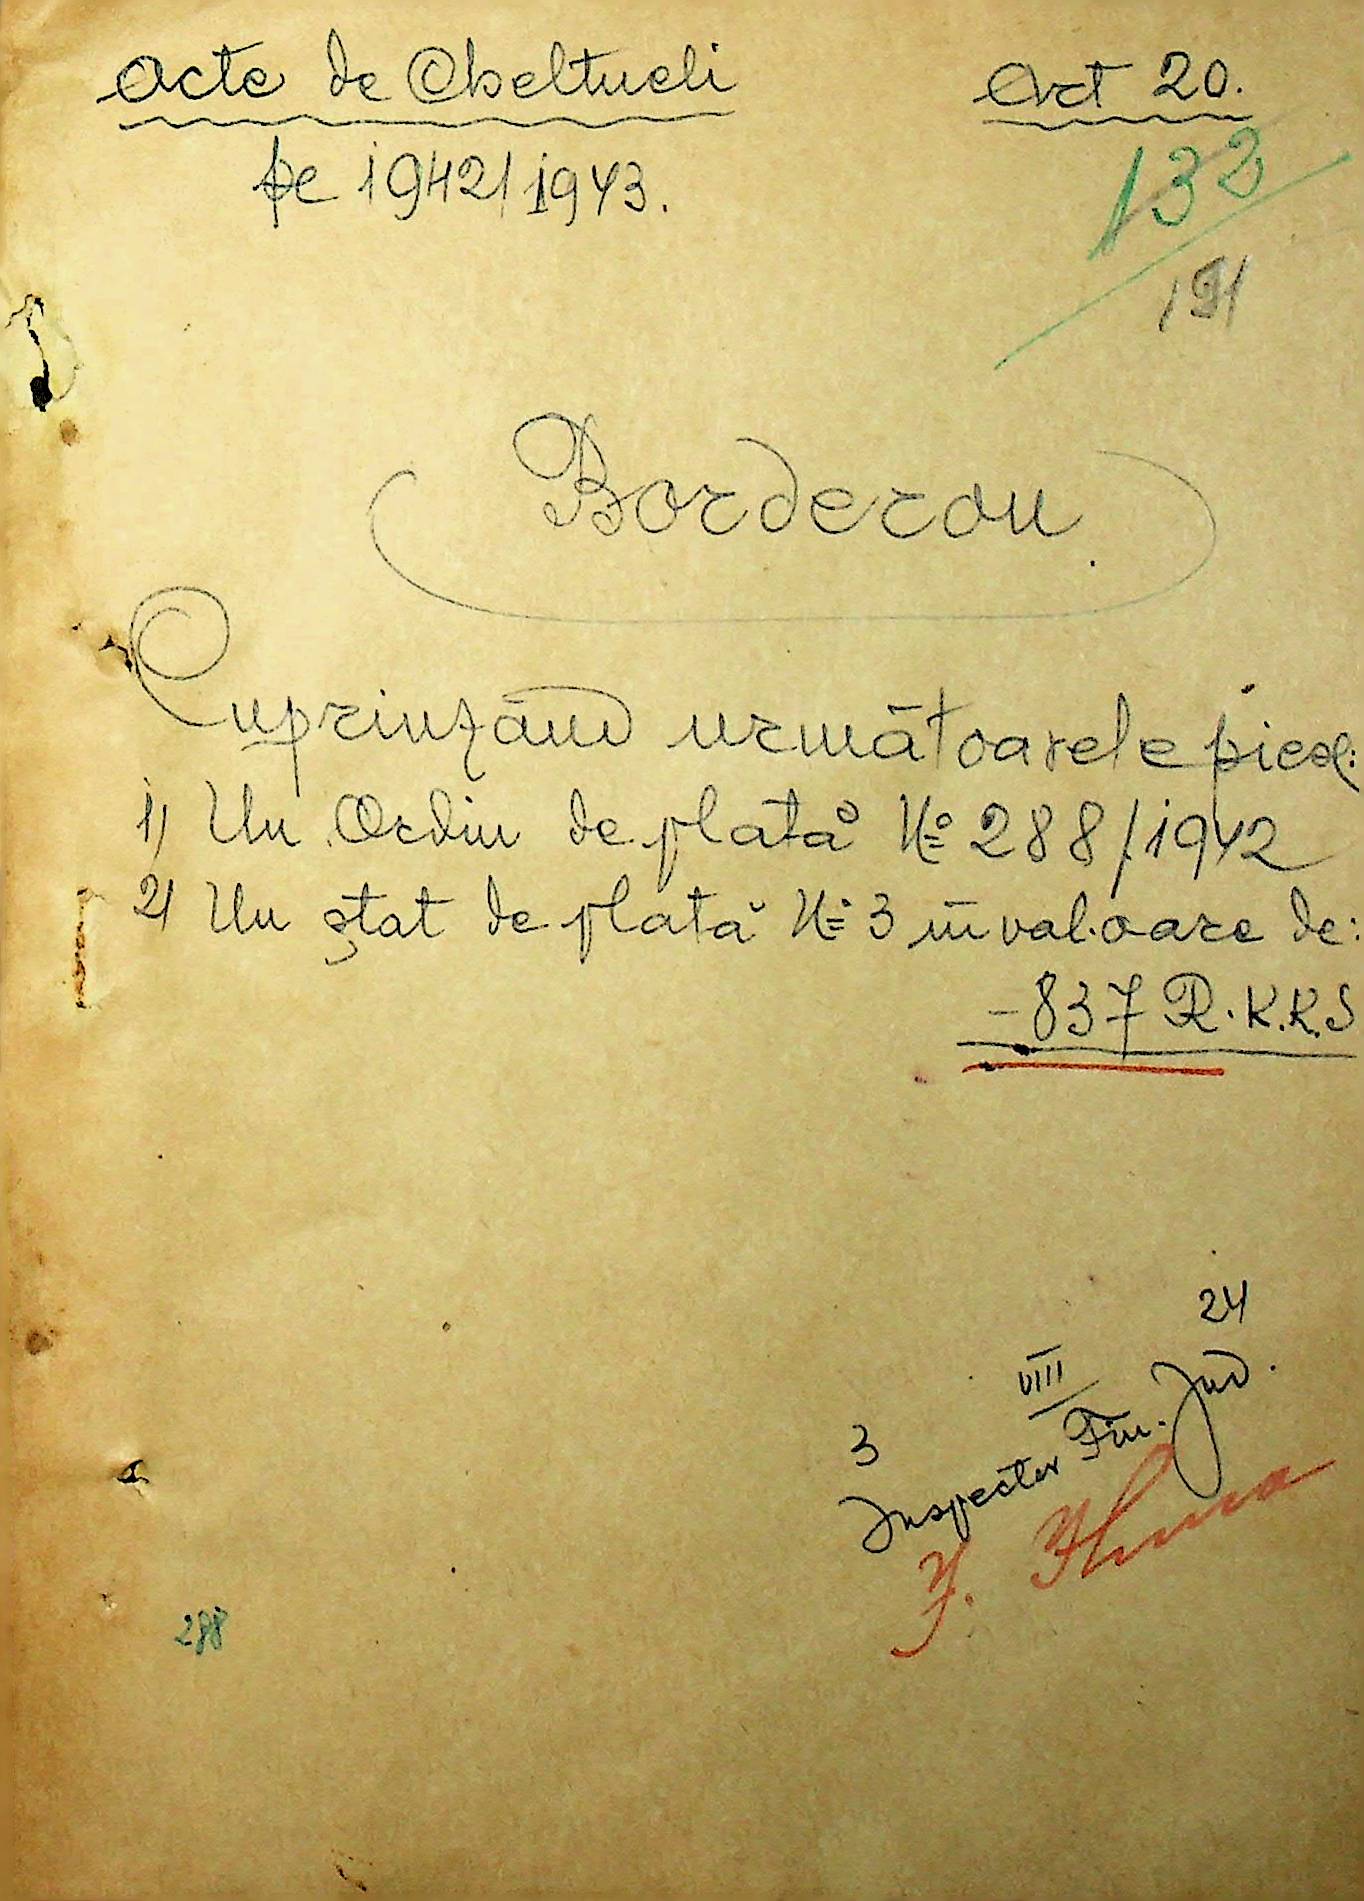 Acte de Cheltueli Art 20.
pe 1942/1943.
133
191
Borderou.
Cuprinzând următoarele piese:
1) Un Ordin de plată No 288/1942
2) Un ștat de plată No 3 în valoare de:
-837 R.K.K.S
3 VIII 24
Inspector Fin. Jud.
288